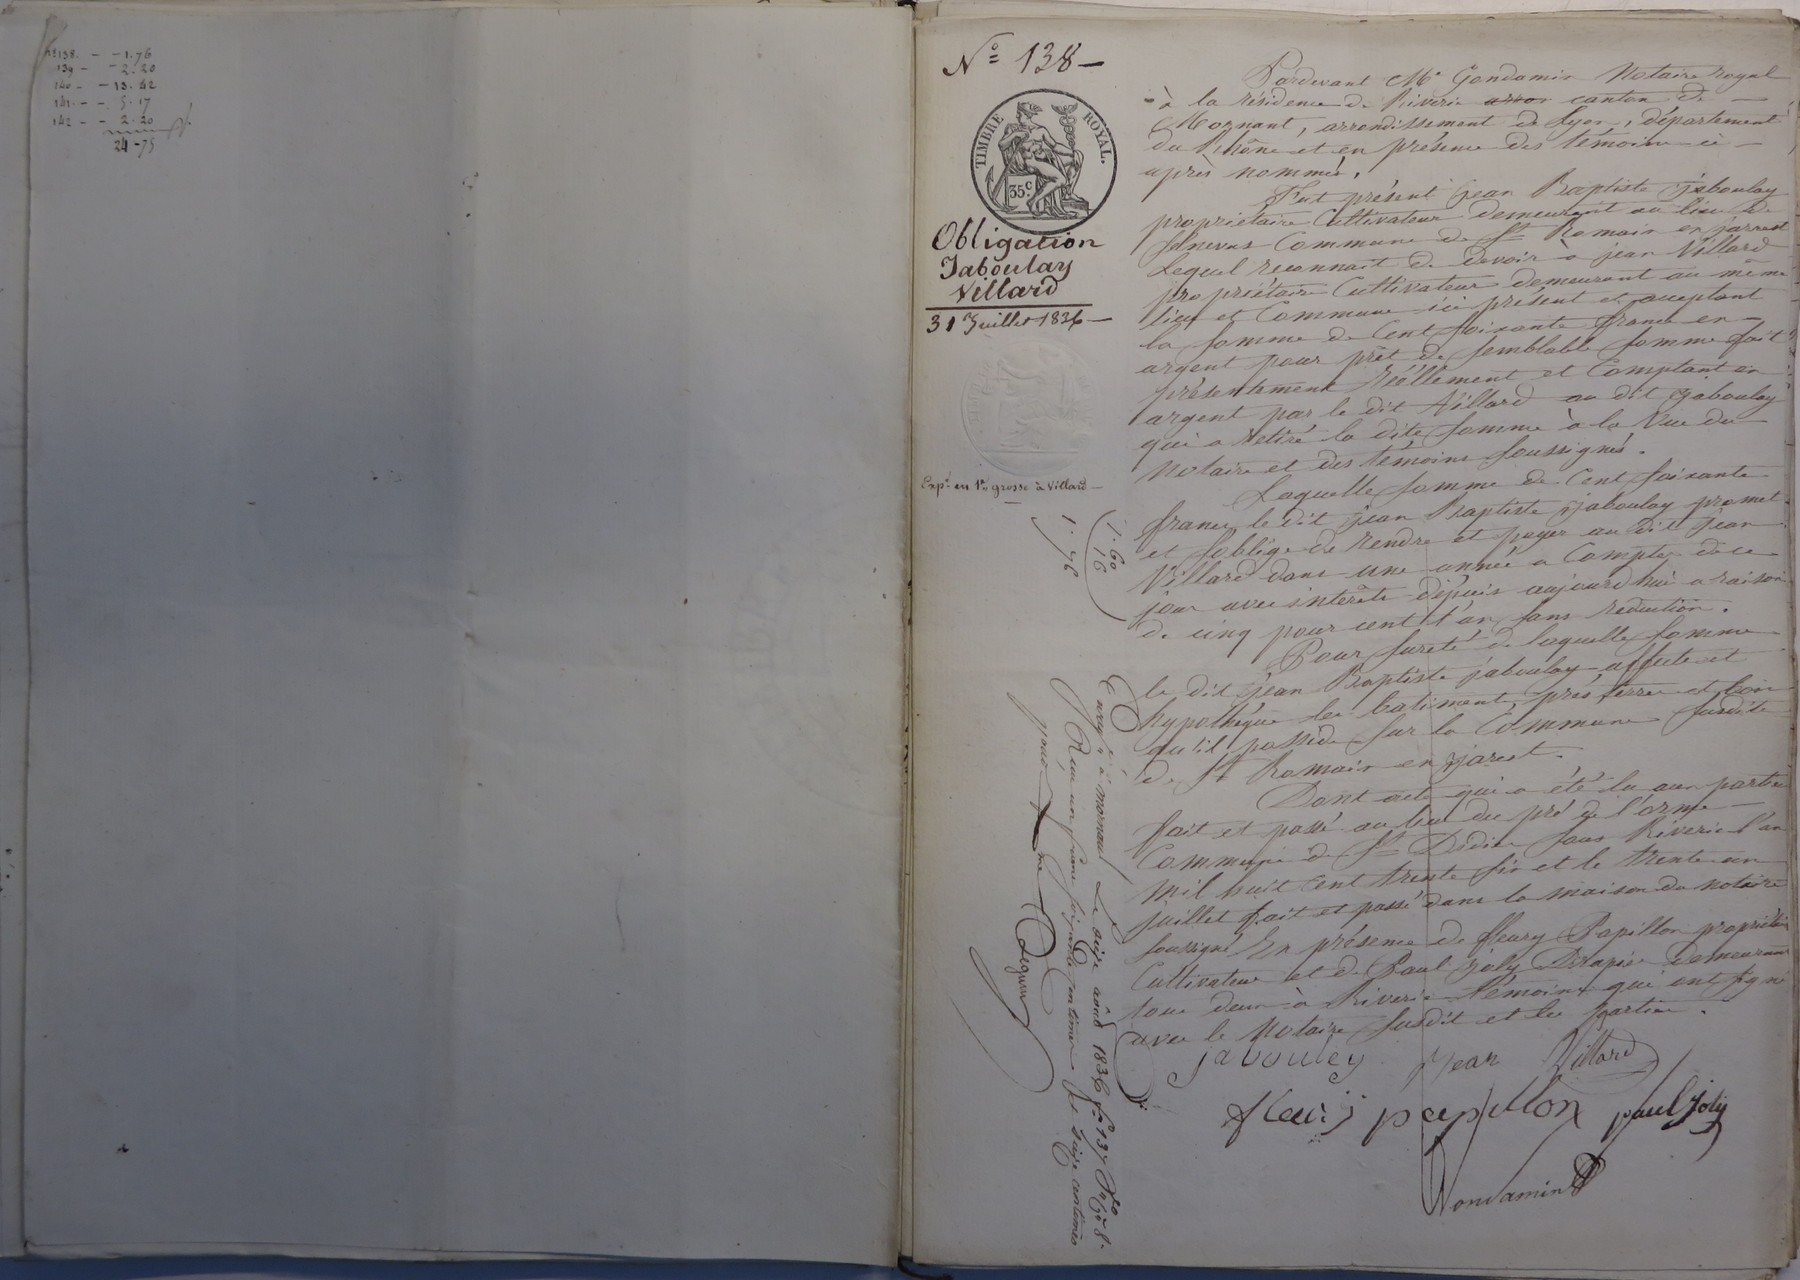 n° 138. - - 1.76
139 - - 2.20
140 - - 13.42
141 - - 5.17
142 - - 2.20
24-75
N° 138 -
TIMBRE ROYAL.
35 c.
Obligation
Jaboulay
Villard
31 Juillet 1836 -
Exp. en 1re grosse à Villard -
1.60
16
1.76
Pardevant Me Gondamin Notaire royal
à la résidence de Riverie canton de
Mornant, arrondissement de Lyon, département
du Rhône et en présence des témoins ci-
après nommés,
Fut présent jean Baptiste jaboulay
propriétaire Cultivateur demeurant au lieu de
Commune de St Romain en jarrest
Lequel reconnait de devoir à jean Villard
propriétaire Cultivateur demeurant au même
lieu et Commune ici présent et acceptant
la somme de Cent soixante francs en
argent pour prêt de semblable somme fait
présentement Réellement et Comptant en
argent par le dit Villard au dit jaboulay
qui a retiré la dite somme à la Vue du
Notaire et des témoins soussignés.
Laquelle somme de Cent soixante
francs le dit jean Baptiste jaboulay promet
et s'oblige de rendre et payer au dit jean
Villard dans une année a Compter de ce
jour avec intérêts depuis aujourd'hui a raison
de cinq pour cent l'an sans réduction.
Pour sureté de laquelle somme
le dit jean Baptiste jaboulay affecte et
hypothèque les batiments, prés, terres et bois
qu'il possède sur la Commune susdite
de St Romain en jarest.
Dont acte qui a été lu aux parties
fait et passé au lieu du pré de l'orme
Commune de St Didier sous Riverie l'an
mil huit cent trente six et le trente un
juillet fait et passé dans la maison du notaire
soussigné En présence de fleury Papillon propriétaire
Cultivateur et de Paul joly Demeurant
tous deux à Riverie témoins qui ont signé
avec le Notaire susdit et les parties.
jabouley jean Villard
fleury papillon paul Joly
Gondamin
Enreg. à mornant Le seize août 1836 f° 137
Reçu un franc soixante centimes seize centimes